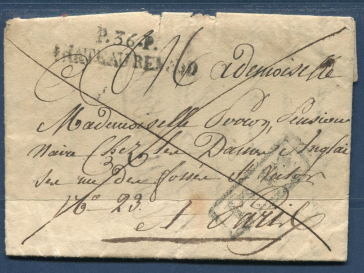 P.36.P.
CHATEAURENAUD
A Mademoiselle
Mademoiselle Pension
naire Chez les Dames Anglai
ses rue des fossés St victor
N° 23.
A Paris